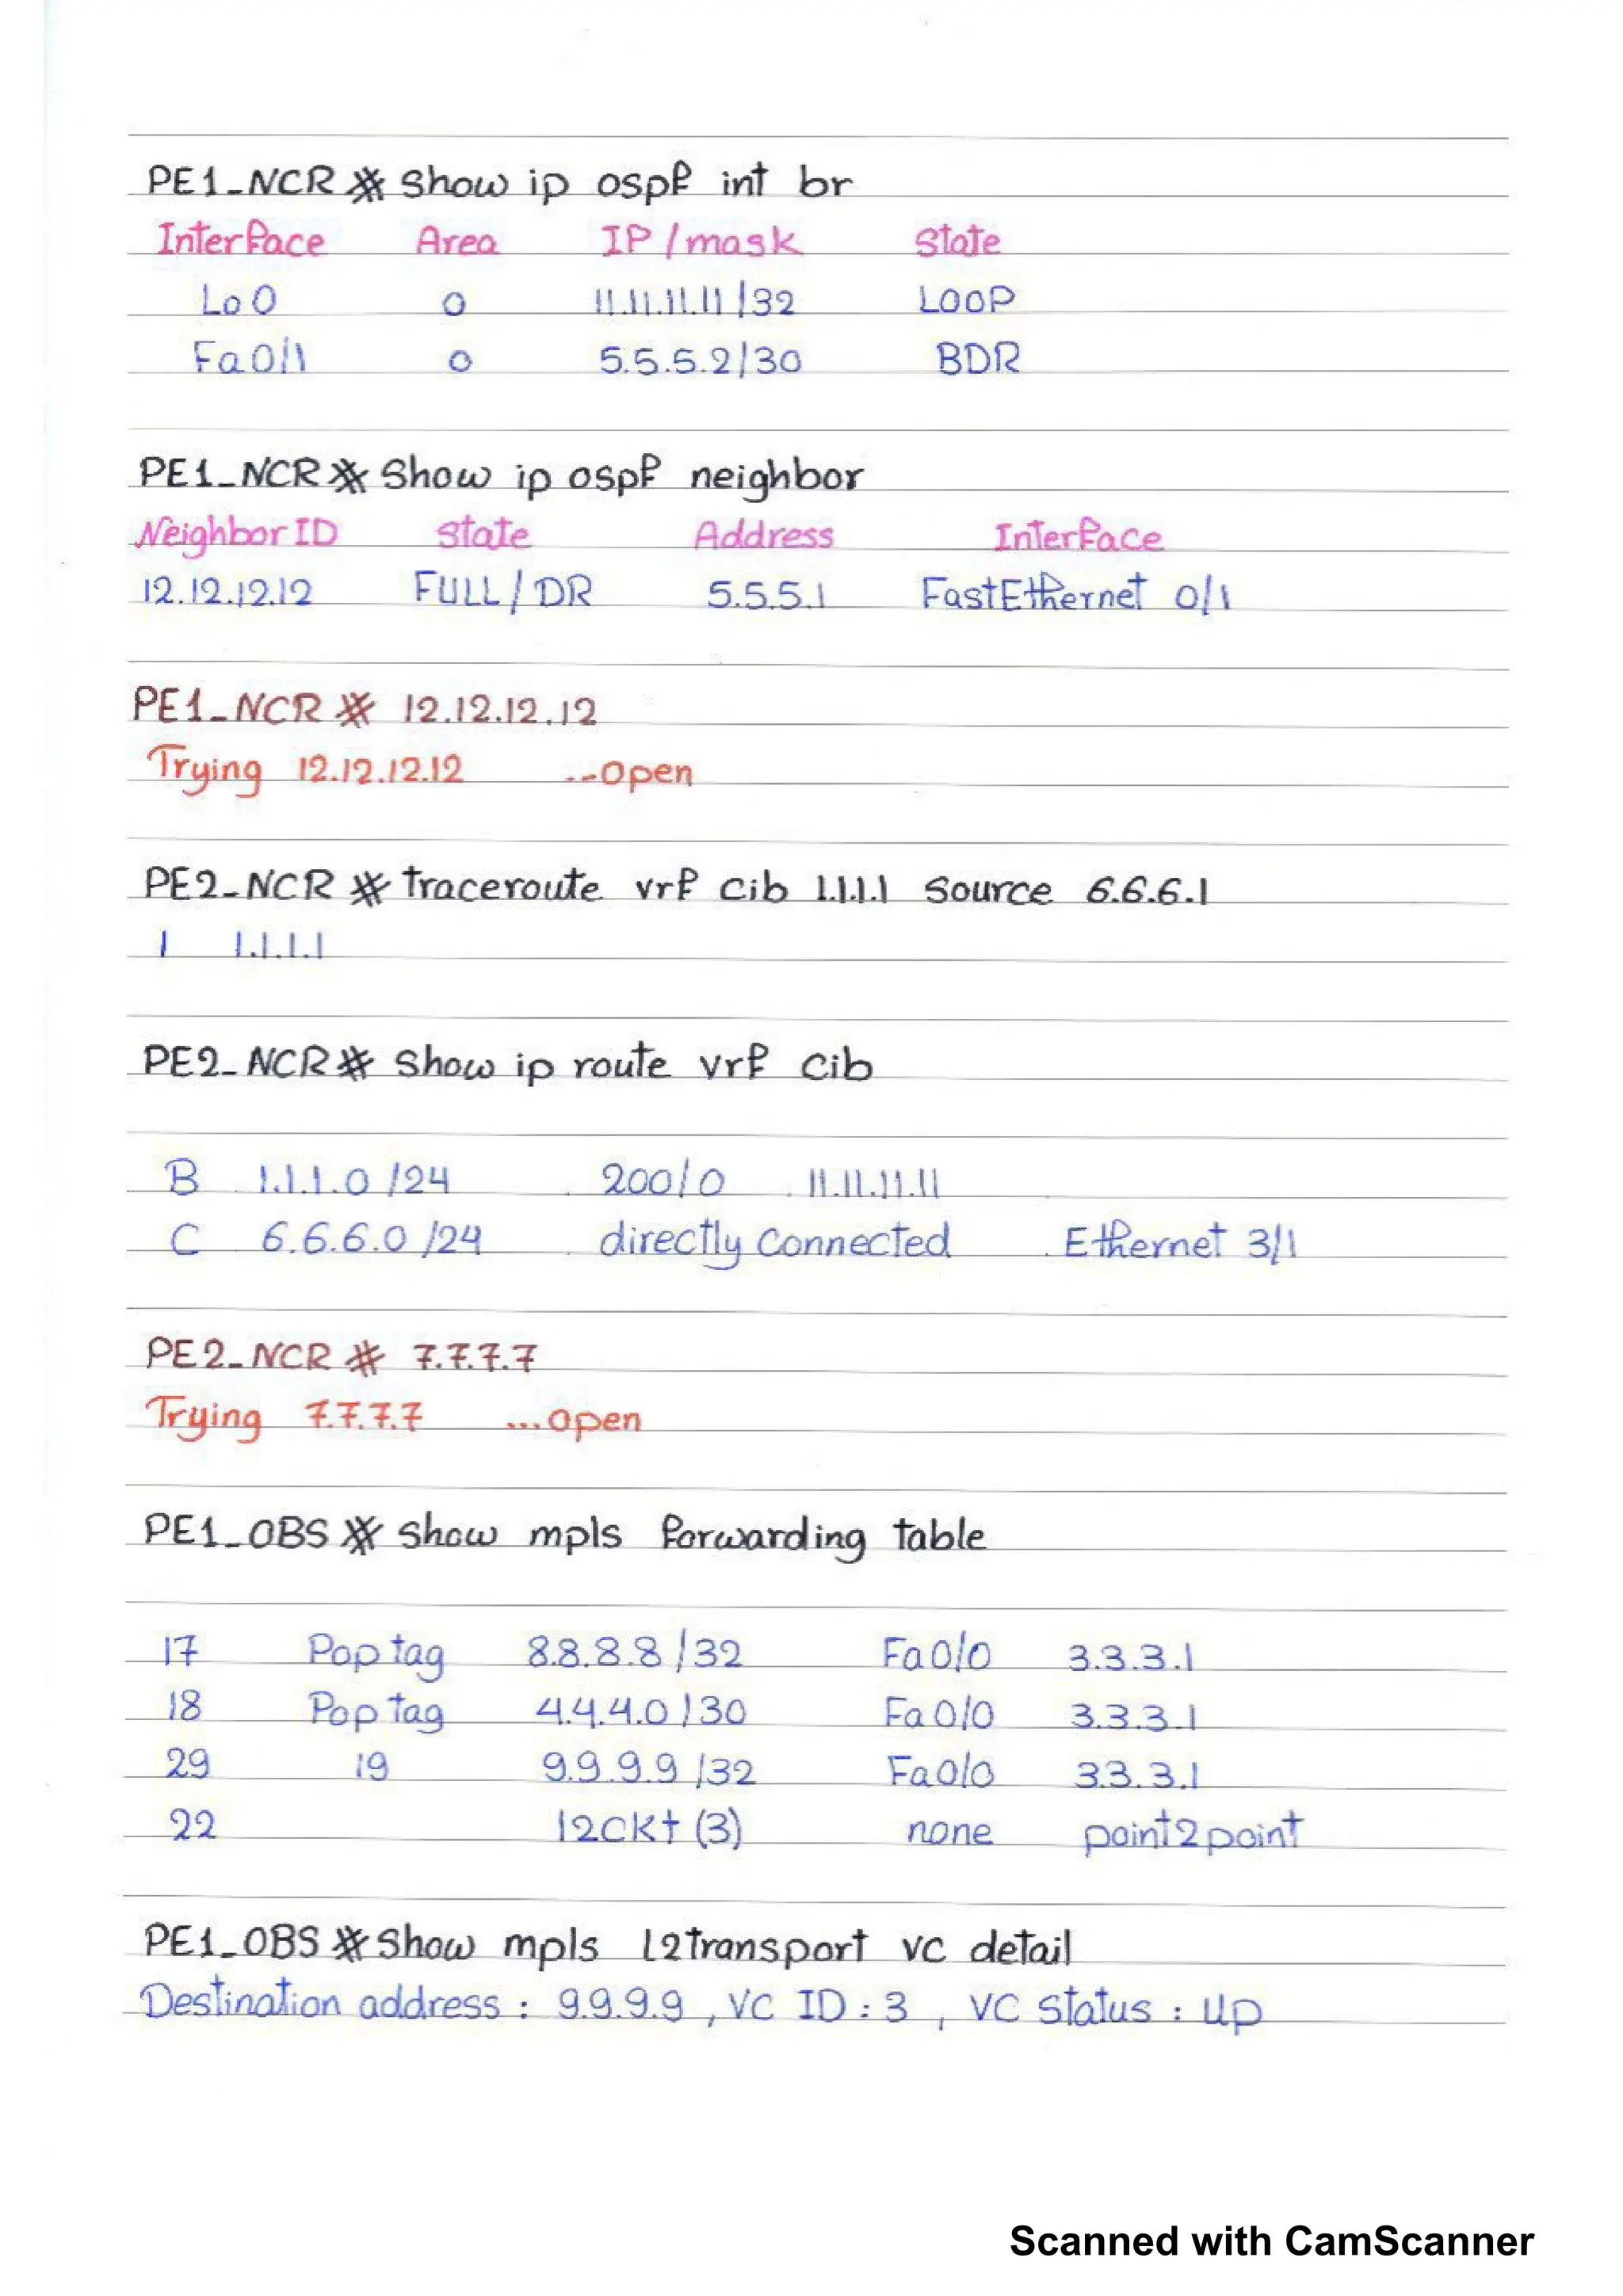 PE1_NCR # show ip ospf int br
Interface Area IP/mask State
Lo0 0 11.11.11.11/32 LOOP
Fa0/1 0 5.5.5.2/30 BDR
PE1_NCR # show ip ospf neighbor
Neighbor ID State Address Interface
12.12.12.12 FULL/DR 5.5.5.1 FastEthernet 0/1
PE1_NCR # 12.12.12.12
Trying 12.12.12.12 ..open
PE2_NCR # traceroute vrf cib 1.1.1.1 source 6.6.6.1
1 1.1.1.1
PE2_NCR # show ip route vrf cib
B 1.1.1.0/24 200/0 11.11.11.11
C 6.6.6.0/24 directly connected Ethernet 3/1
PE2_NCR # 7.7.7.7
Trying 7.7.7.7 ...open
PE1_OBS # show mpls forwarding table
17 Pop tag 8.8.8.8/32 Fa0/0 3.3.3.1
18 Pop tag 4.4.4.0/30 Fa0/0 3.3.3.1
29 19 9.9.9.9/32 Fa0/0 3.3.3.1
22 l2ckt (3) none point2point
PE1_OBS # show mpls l2transport vc detail
Destination address : 9.9.9.9 , VC ID : 3 , VC status : up
Scanned with CamScanner